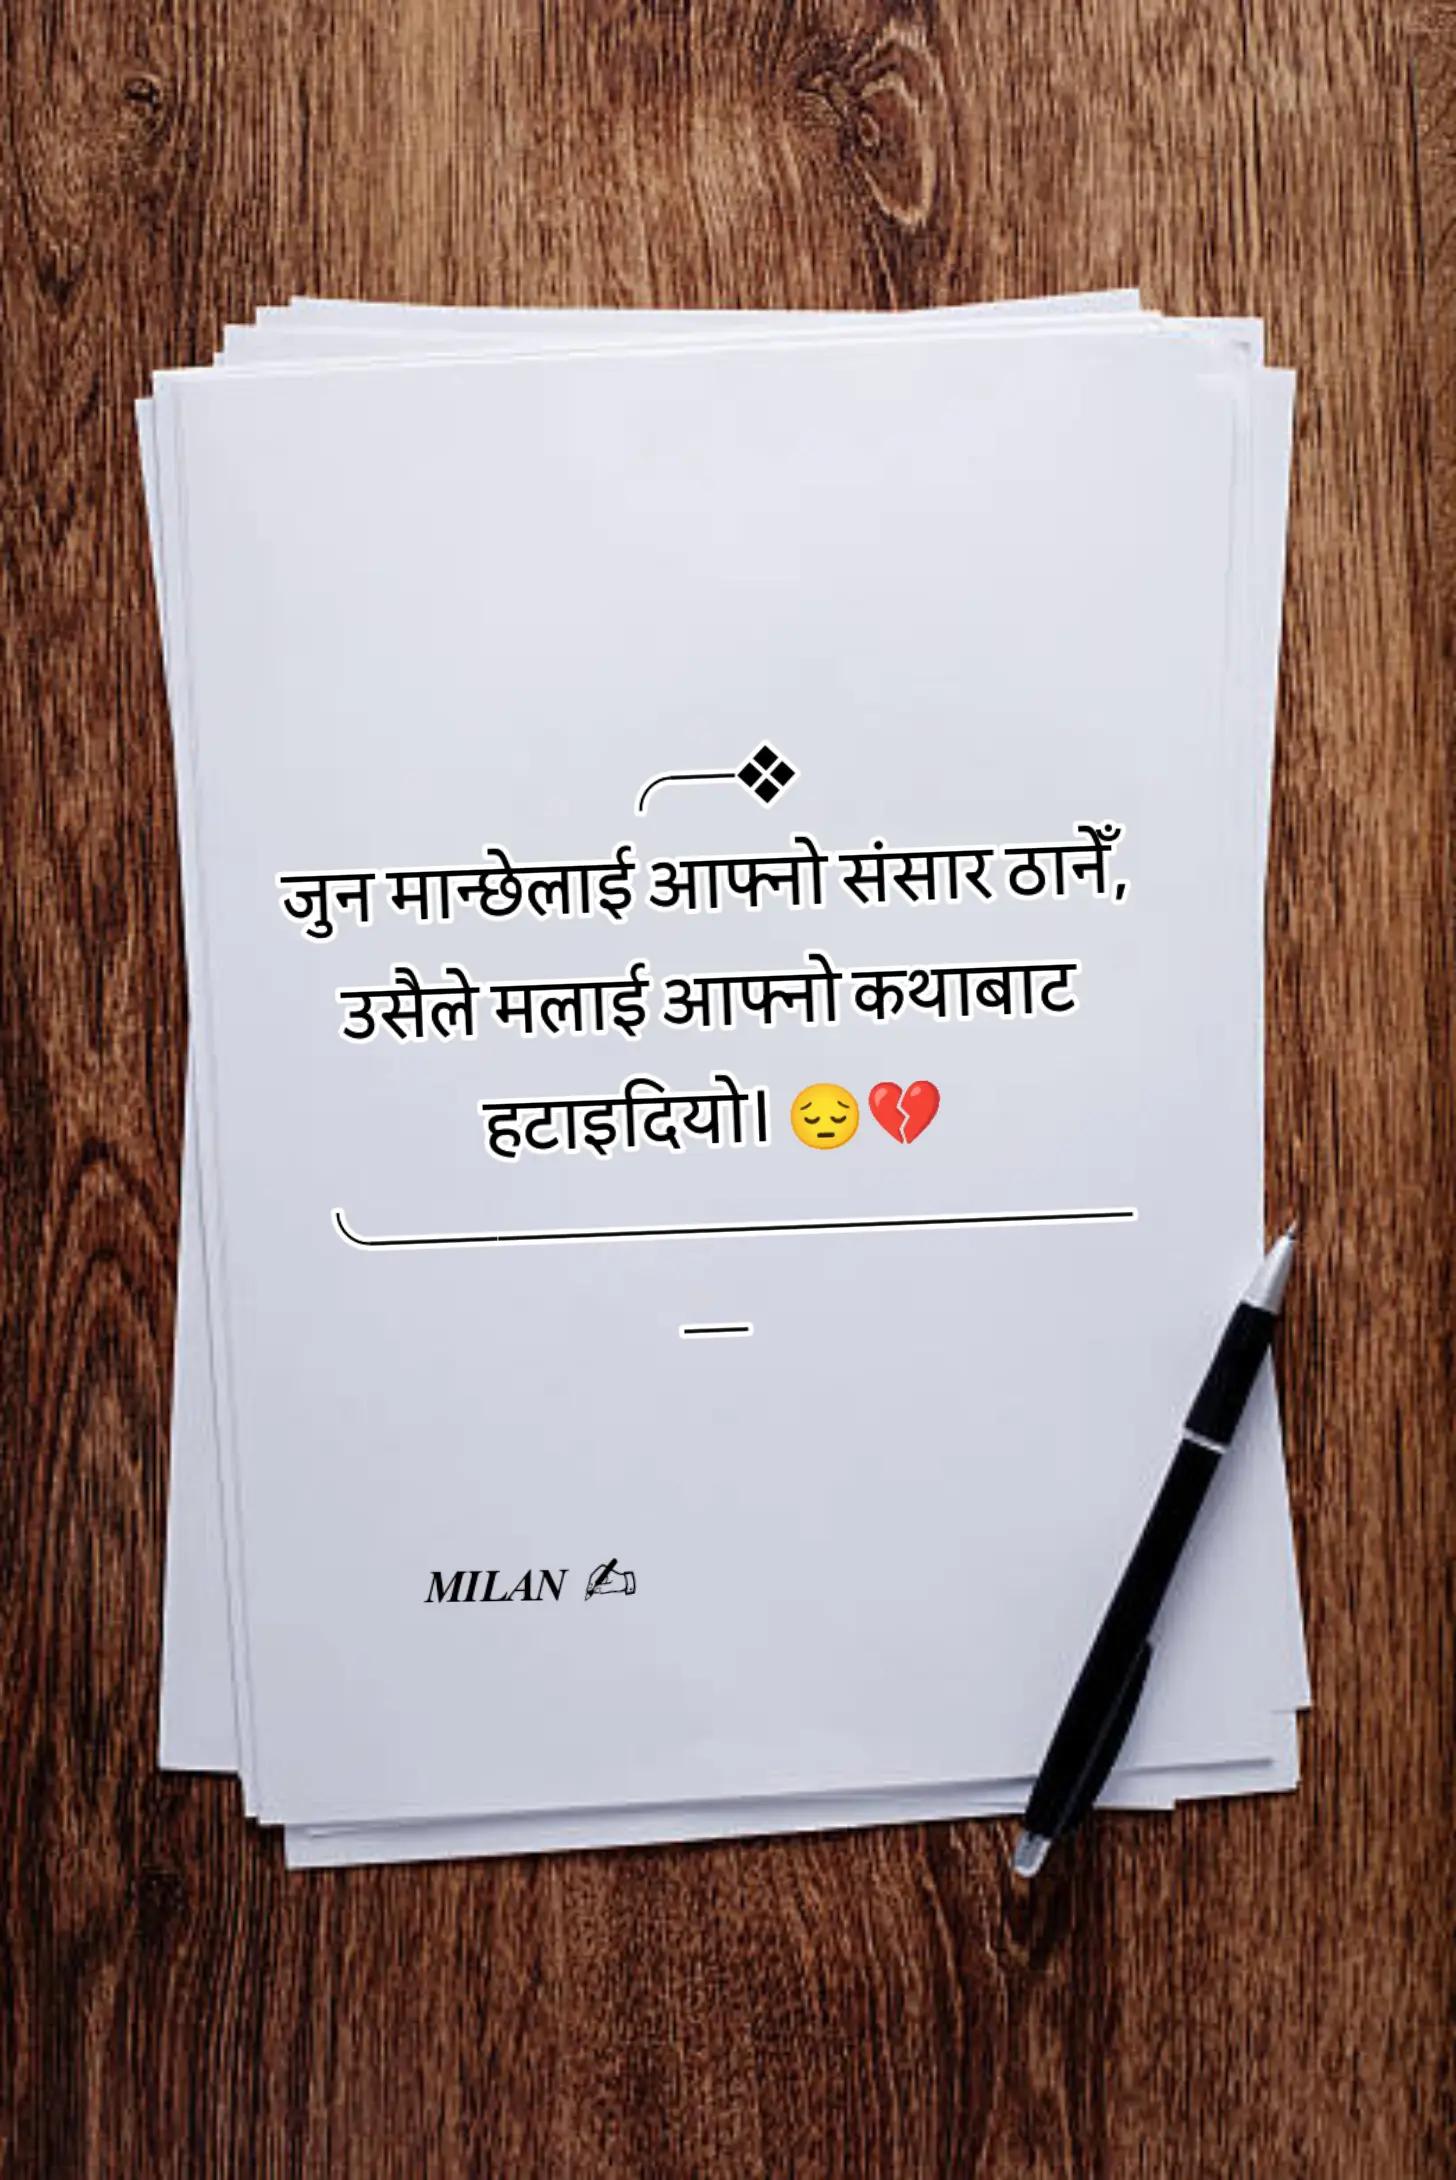 ❖
जुन मान्छेलाई आफ्नो संसार ठानेँ,
उसैले मलाई आफ्नो कथाबाट
हटाइदियो। 😔💔
—
MILAN ✍